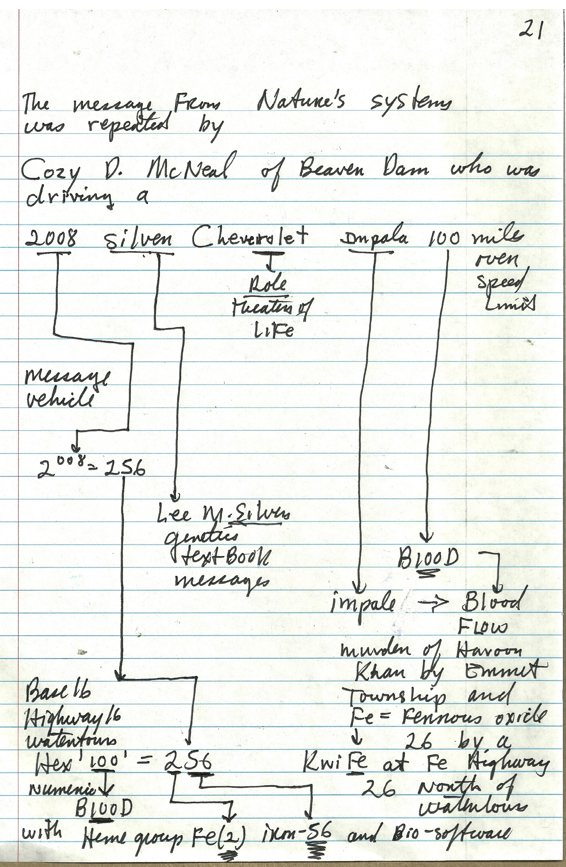 21
The message From Nature's systems
was repeated by
Cozy D. McNeal of Beaver Dam who was
driving a
2008 silver Cheverolet Impala 100 miles
over
Speed
Limit
Role
theaters of
LiFe
message
vehicle
2^008 = 256
Lee M. Silver
genetics
textBook
messages
B100D
impale → Blood
Flow
murder of Haroon
Khan by Emmet
Township and
Fe = Ferrous oxide
26 by a
KwiFe at Fe Highway
26 North of
waterlous
Base 16
Highway 16
watertous
Hex '100' = 256
numeric
B100D
with Heme group Fe(2) iron-56 and Bio-software